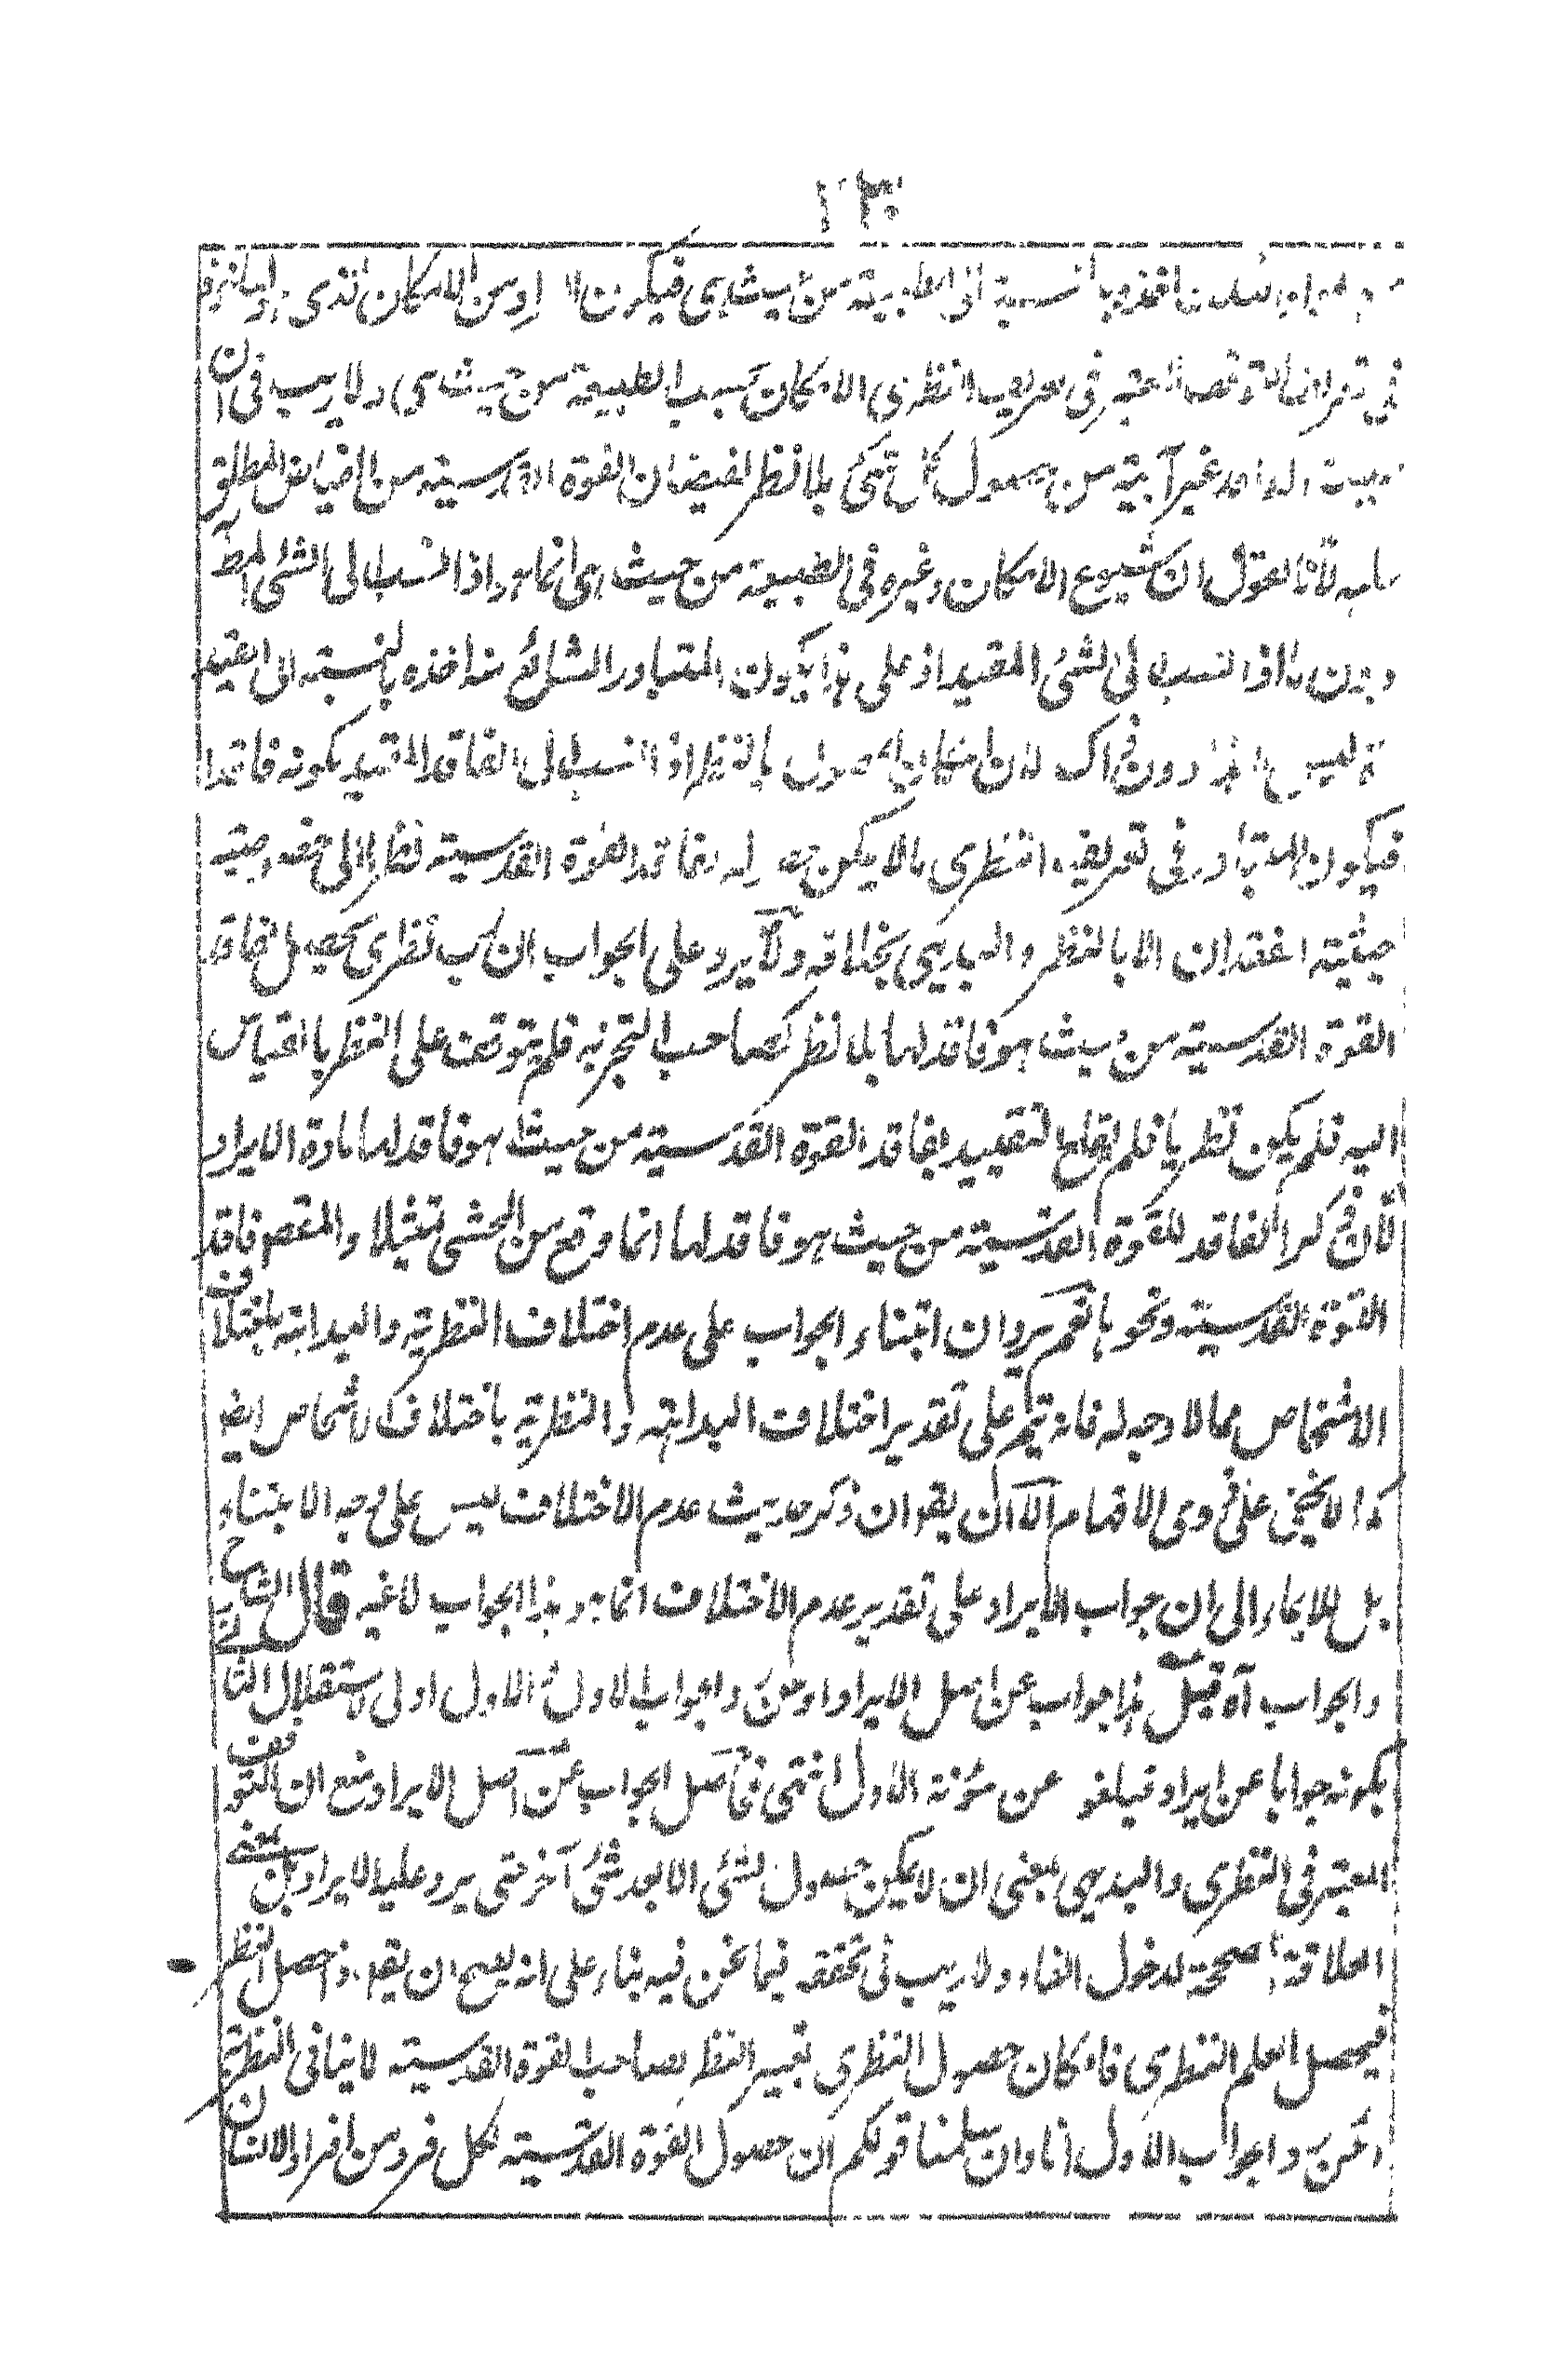 من حيث هي فيكون المراد من الامكان الذي
في تعريف النظري الامكان بحسب الطبيعة من حيث هي ولا ريب في ان
غير آبية من حصول كل شئ بلا نظر لفيضان القوة القدسية من الفياض المطلق
لأنا نقول ان شيوع الامكان وغيره في الطبيعة من حيث هي انما هو اذا انتسب الى الشئ المط
دون ما اذا انتسب الى الشئ المقيد اذ على هذا يكون المتبادر الشائع هو اخذه بالنسبة الى المقيد
وليس هذا دون ذاك لان امكان الحصول بالنظر اذا انتسب الى الفاقد المقيد بكونه فاقدا
فيكون المتبادر في تعريف النظري ما لا يمكن حصوله لفاقد القوة القدسية نظرا الى خصوصية
حيثية الفقدان الا بالنظر والبديهي بخلافه ولا يرد على الجواب ان كسب نظري يحصل لفاقد
القوة القدسية من حيث هو فاقد لها بلا نظر كصاحب التجربة فلم يتوقف على النظر بالقياس
اليه فلم يكن نظريا فلم يقلع التقييد بفاقد القوة القدسية من حيث هو فاقد لها مادة الايراد
لأن ذكر الفاقد للقوة القدسية من حيث هو فاقد لها انما وقع من المحشي تمثيلا والمقصود فاقد
القوة القدسية ونحوها نعم يرد ان ابتناء الجواب على عدم اختلاف النظرية والبداهة باختلاف
الاشخاص مما لا وجه له فانه يتم على تقدير اختلاف البداهة والنظرية باختلاف الاشخاص ايضا
كما لا يخفى على ذوي الافهام الا ان يقو ان ذكر حديث عدم الاختلاف ليس على وجه الابتناء
بل للايماء الى ان جواب الايراد على تقدير عدم الاختلاف انما هو هذا الجواب لا غير قال الشارح
والجواب آه قيل هذا جواب عن اصل الايراد او عن والجواب الاول الاول اولى لاستقلال الثاني
بكونه جوابا عن ايراد فيلغو عن مؤنة الاول انتهى فحاصل الجواب عن اصل الايراد منع ان التوقف
المعتبر في النظري والبديهي بمعنى ان لا يمكن حصول الشئ الا بعد شئ آخر حتى يرد عليه الايراد بل بمعنى
العلاقة المصححة لدخول الفاء ولا ريب في تحققه فيما نحن فيه بناء على انه يصح ان يقو اذا حصل النظر
فيحصل العلم النظري فامكان حصول النظري بغير النظر لصاحب القوة القدسية لا ينافي النظرية
وعن والجواب الاول انا وان سلمنا قولكم ان حصول القوة القدسية لكل فرد من افراد الانسان